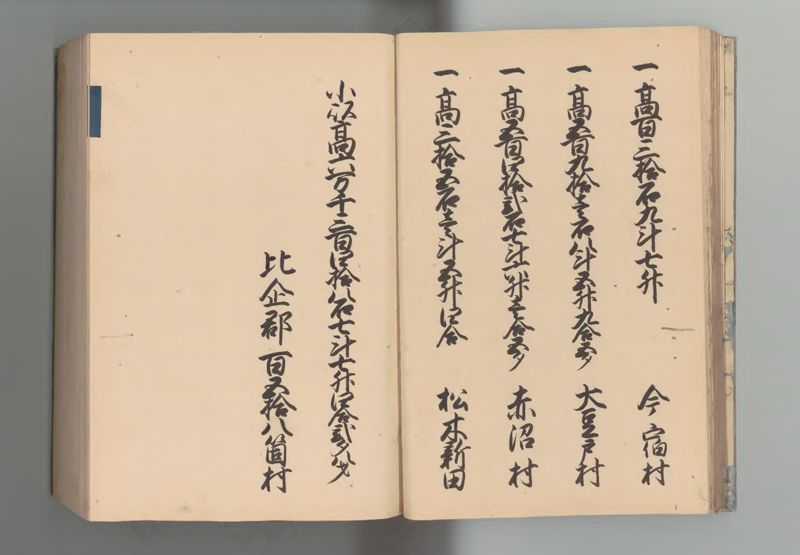 一高百三拾石九斗七升 今宿村
一高五百九拾壱石八斗五升九合五夕 大豆戸村
一高五百四拾弐石七斗六升壱合五夕 赤沼村
一高三拾五石壱斗五升四合 松本新田
小以高六万千三百四拾八石七斗七升四合弐夕八才
比企郡百五拾八箇村